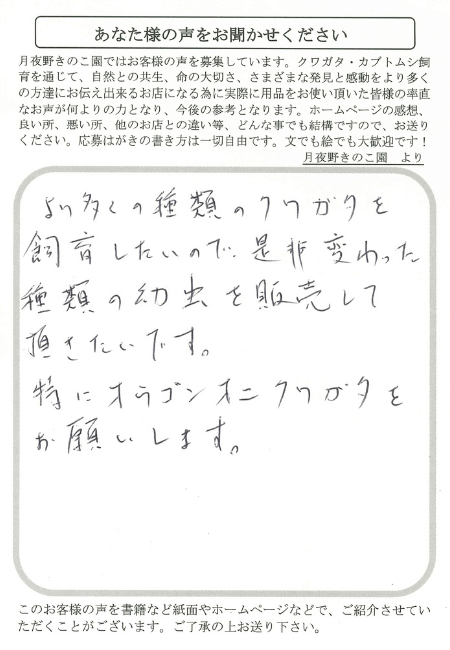 あなた様の声をお聞かせください
月夜野きのこ園ではお客様の声を募集しています。クワガタ・カブトムシ飼
育を通じて、自然との共生、命の大切さ、さまざまな発見と感動をより多く
の方達にお伝え出来るお店になる為に実際に用品をお使い頂いた皆様の率直
なお声が何よりの力となり、今後の参考となります。ホームページの感想、
良い所、悪い所、他のお店との違い等、どんな事でも結構ですので、お送り
ください。応募はがきの書き方は一切自由です。文でも絵でも大歓迎です！
月夜野きのこ園　より
より多くの種類のクワガタを
飼育したいので、是非変わった
種類の幼虫を販売して
頂きたいです。
特にオウゴンオニクワガタを
お願いします。
このお客様の声を書籍など紙面やホームページなどで、ご紹介させてい
ただくことがございます。ご了承の上お送り下さい。